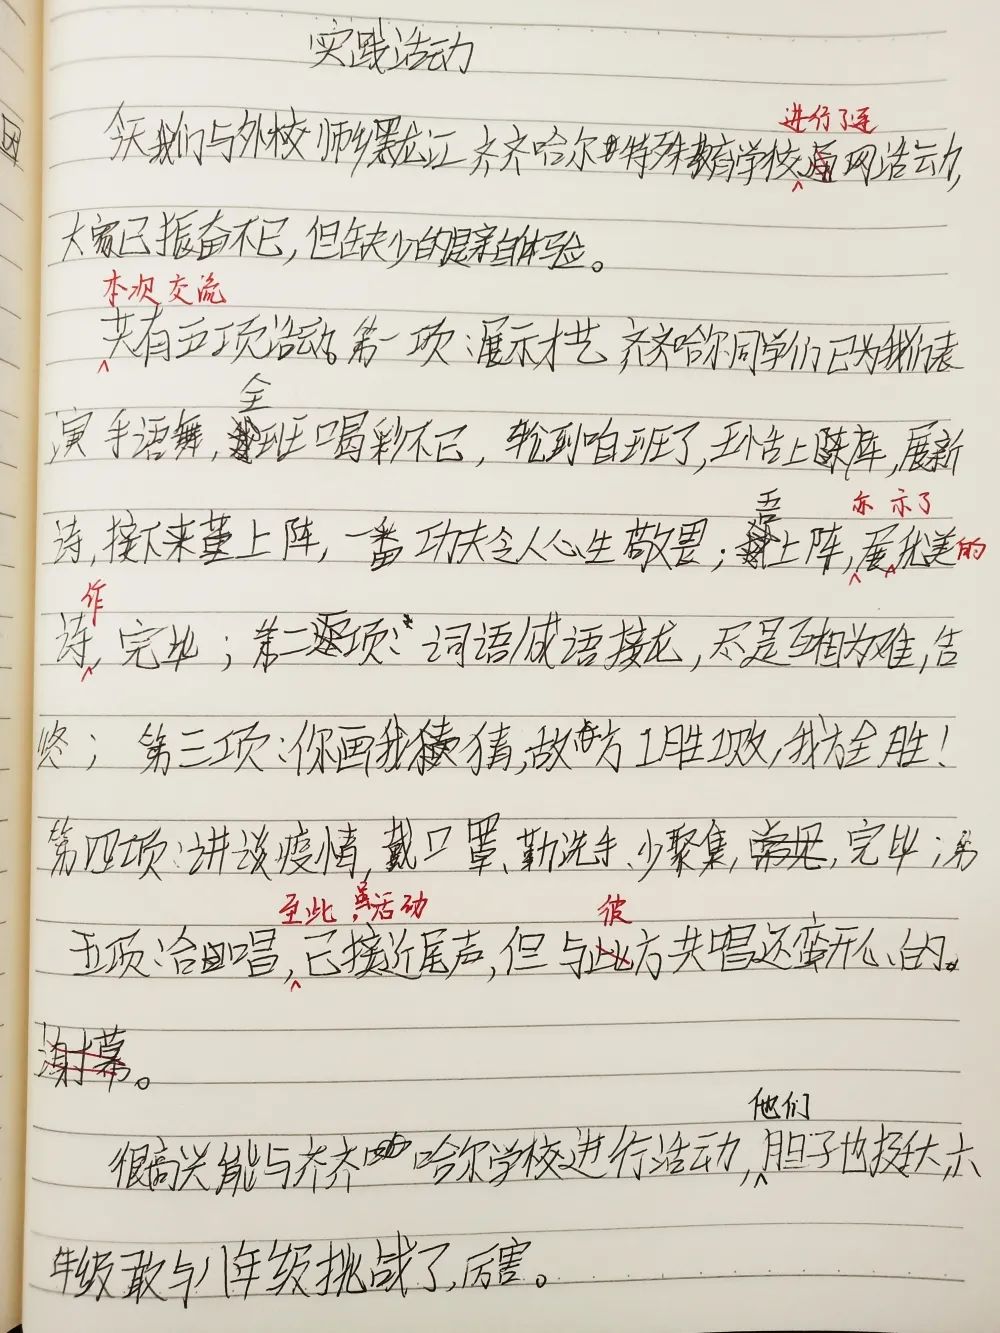 实践活动
进行了连
今天我们与外校师生黑龙江齐齐哈尔市特殊教育学校通网活动,
大家已振奋不已,但缺少的是亲自体验。
本次交流
共有五项活动。第一项:展示才艺 齐齐哈尔同学们已为我们表
全
演手语舞,班喝彩不已,轮到咱班了,王小吉上阵,展新
吾 亦 示了
诗,接下来董上阵,一番功夫令人心生敬畏;上阵,展优美的
作
诗,完毕;第二项:词语/成语接龙,尽是互相为难,告
终;第三项:你画我猜,敌方1胜1败,我方全胜!
第四项:讲谈疫情,戴口罩、勤洗手、少聚集,常见,完毕;第
至此,活动 彼
五项:合唱,已接近尾声,但与此方共唱还蛮开心的。
谢幕。
他们
很高兴能与齐齐哈尔学校进行活动,胆子也挺大,六
年级敢与八年级挑战了,厉害。